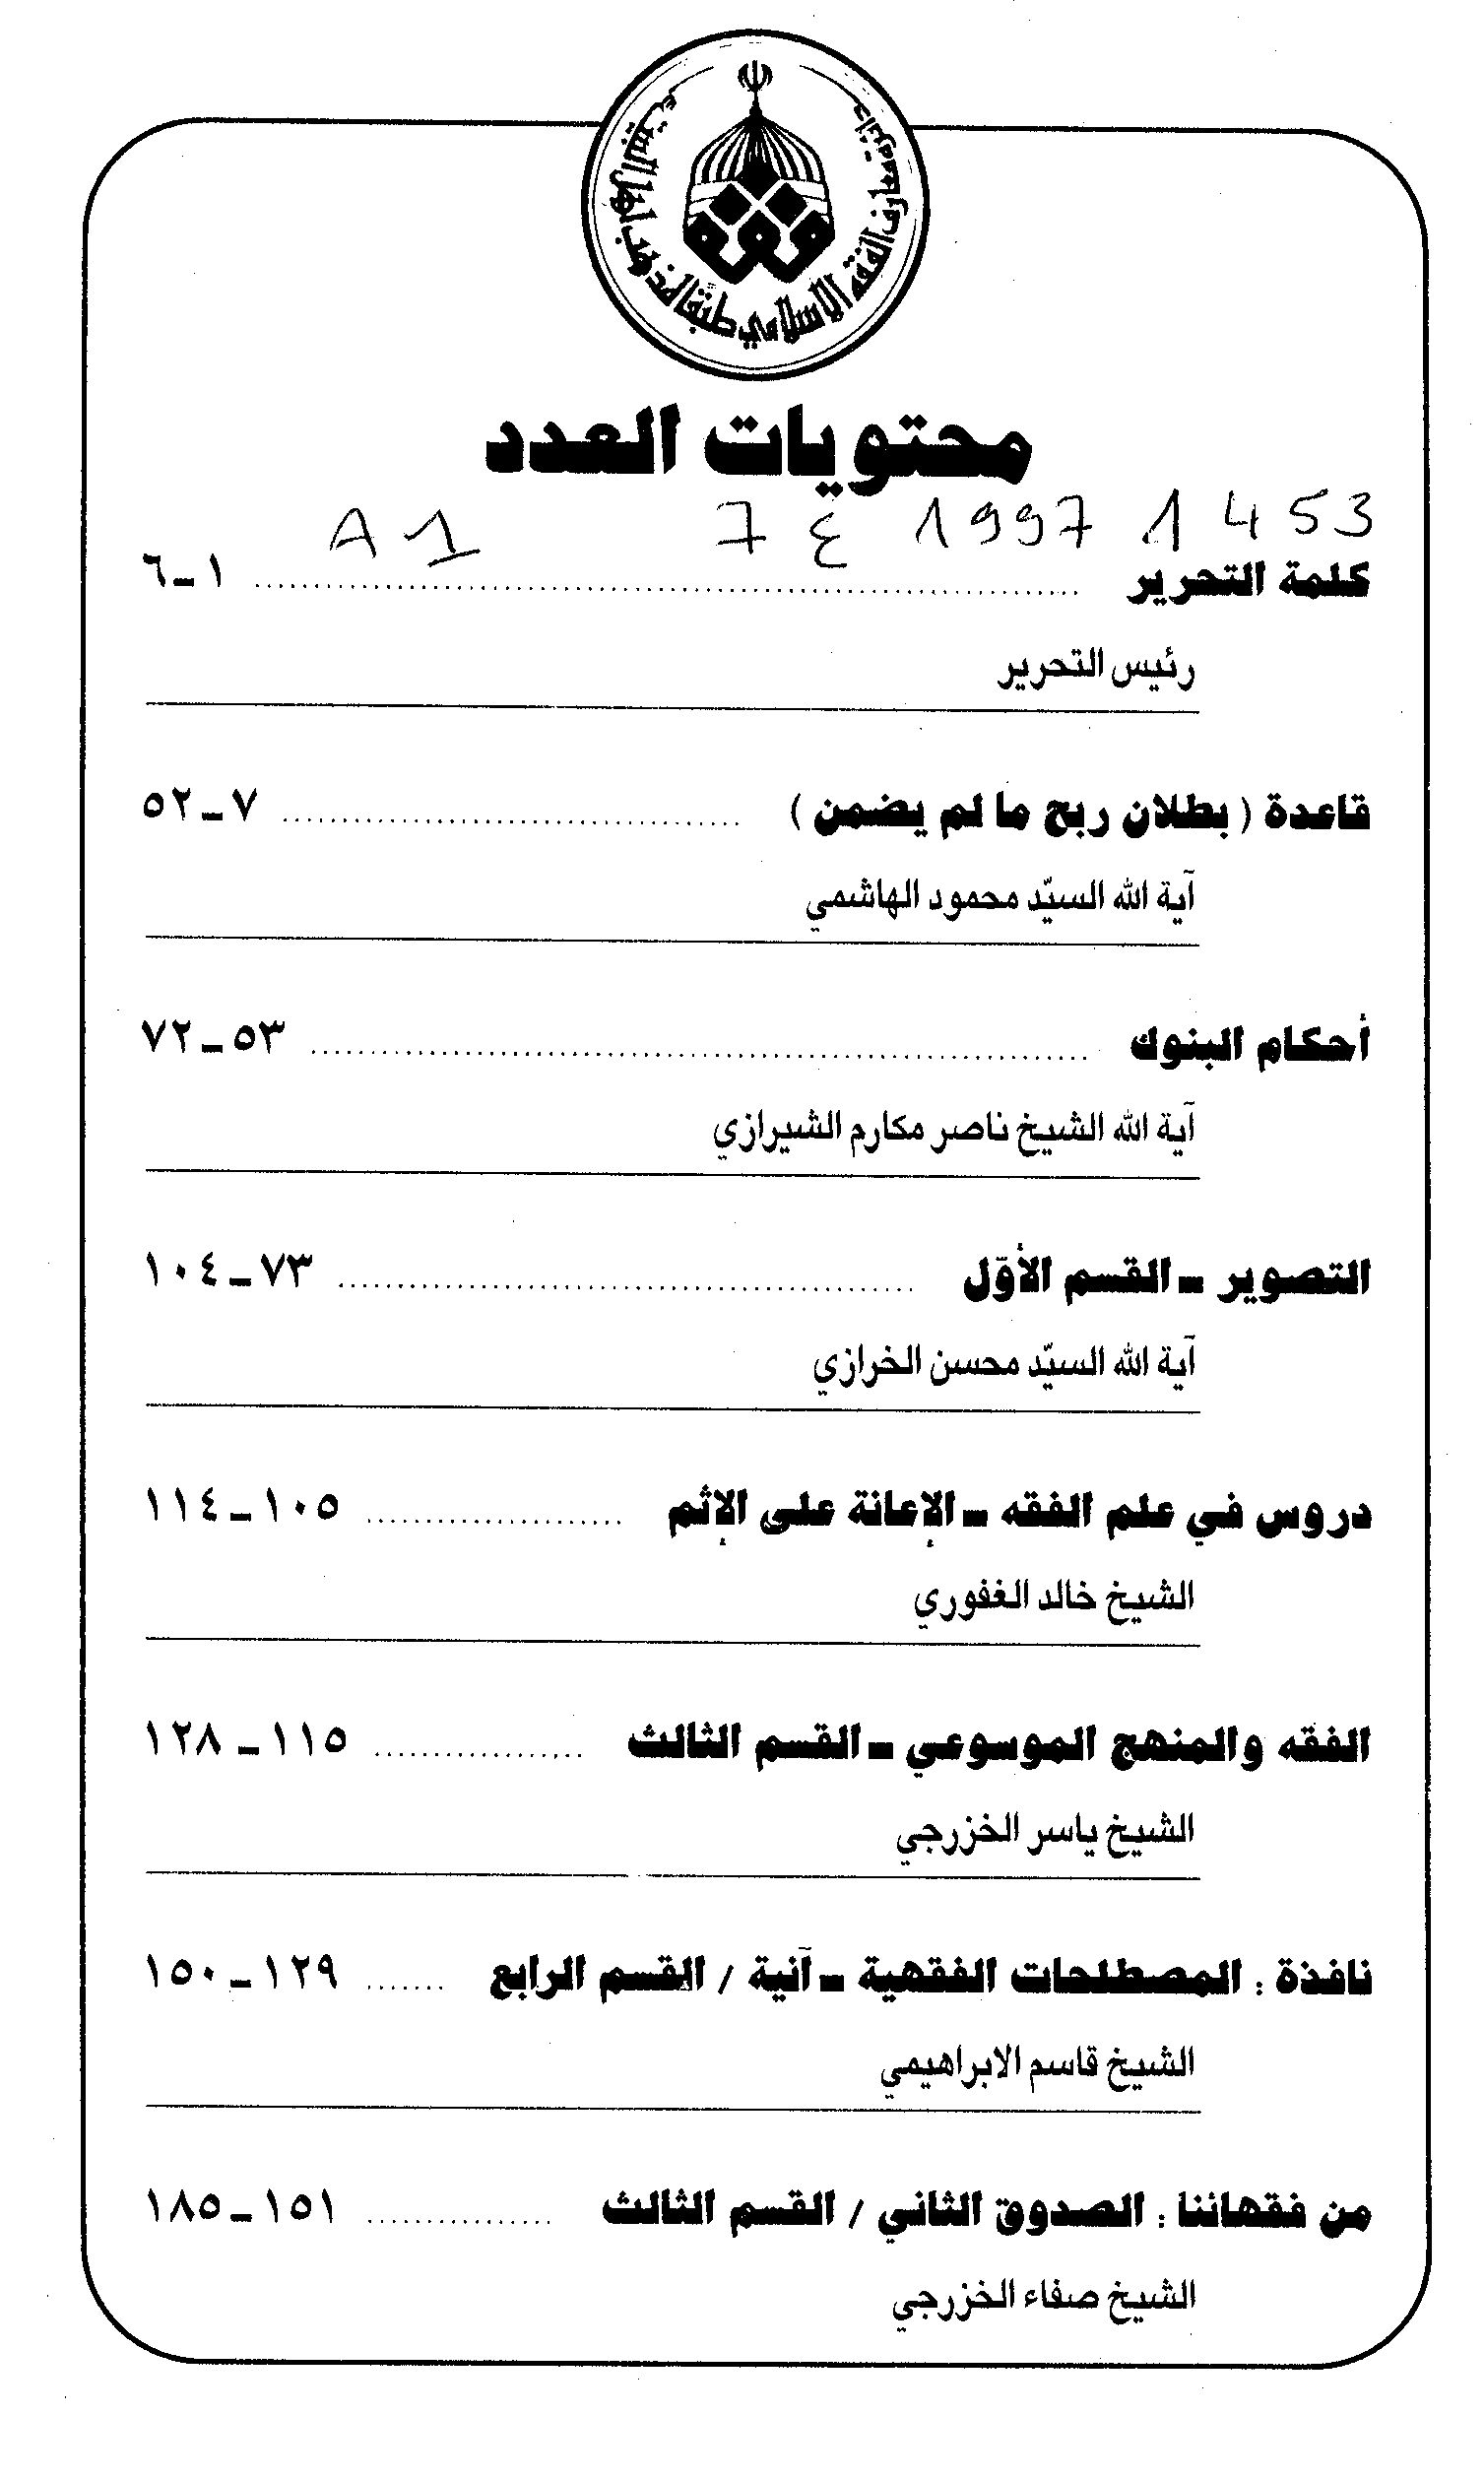 دائرة معارف الفقه الاسلامي طبقا لمذهب اهل البيت
محتويات العدد
A1 7 ٤ 1997 1 453
كلمة التحرير ١ ـ ٦
رئيس التحرير
قاعدة ( بطلان ربح ما لم يضمن ) ٧ ـ ٥٢
آية الله السيّد محمود الهاشمي
أحكام البنوك ٥٣ ـ ٧٢
آية الله الشيخ ناصر مكارم الشيرازي
التصوير ـ القسم الأوّل ٧٣ ـ ١٠٤
آية الله السيّد محسن الخرازي
دروس في علم الفقه ـ الإعانة على الإثم ١٠٥ ـ ١١٤
الشيخ خالد الغفوري
الفقه والمنهج الموسوعي ـ القسم الثالث ١١٥ ـ ١٢٨
الشيخ ياسر الخزرجي
نافذة : المصطلحات الفقهية ـ آنية / القسم الرابع ١٢٩ ـ ١٥٠
الشيخ قاسم الابراهيمي
من فقهائنا : الصدوق الثاني / القسم الثالث ١٥١ ـ ١٨٥
الشيخ صفاء الخزرجي